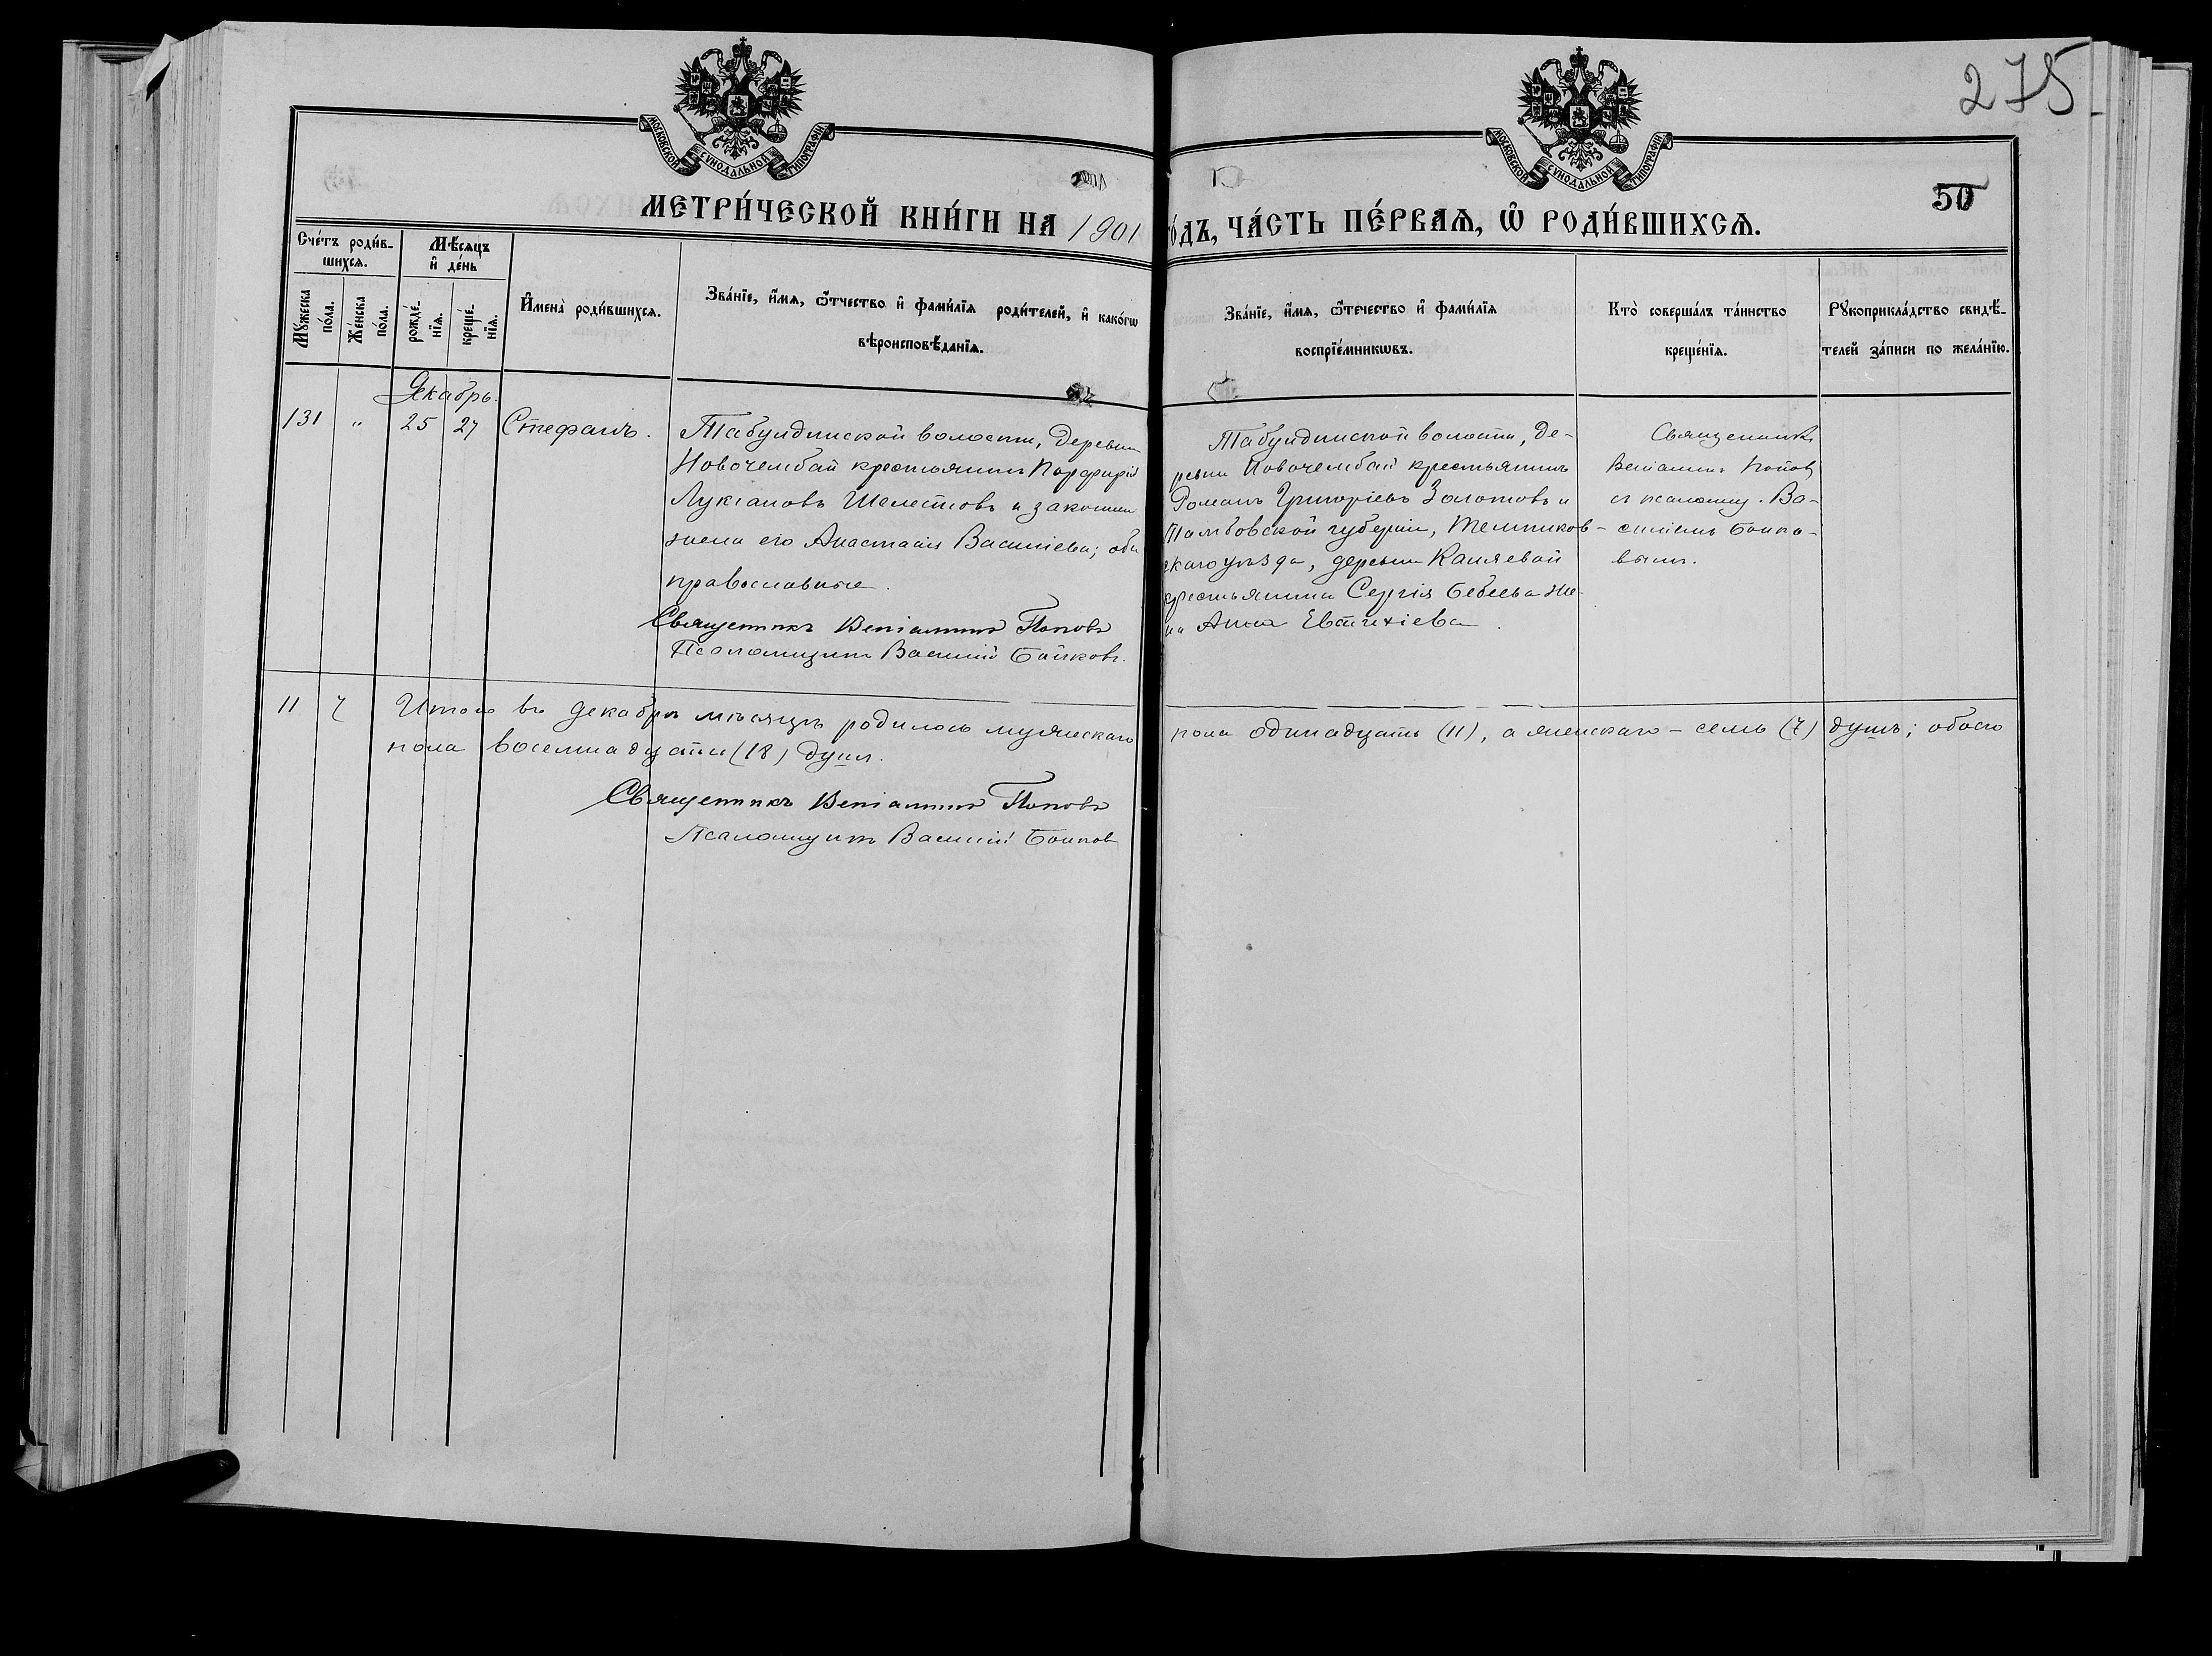 275
МОСКОВСКОЙ СѴНОДАЛЬНОЙ ТИПОГРАФІИ
МОСКОВСКОЙ СѴНОДАЛЬНОЙ ТИПОГРАФІИ
50
МЕТРИ́ЧЕСКОЙ КНИ́ГИ НА 1901
О́ДЪ, ЧА́СТЬ ПЕ́РВАѦ, Ѡ҆ РОДИ́ВШИХСѦ.
Сче́тъ роди́в-
шихсѧ.
Мꙋ́жеска
по́ла.
Же́нска
по́ла.
Мѣ́сѧцъ
и҆ де́нь
рожде́-
нїѧ.
креще́-
нїѧ.
И҆мена̀ роди́вшихсѧ.
Зва́нїе, и҆́мѧ, ѻ҆́тчество и҆ фами́лїѧ роди́телей, и҆ како́гѡ
вѣроисповѣ́данїѧ.
Зва́нїе, и҆́мѧ, ѻ҆те́чество и҆ фами́лїѧ
воспрїе́мникѡвъ.
Кто̀ соверша́лъ та́инство
креще́нїѧ.
Рꙋкоприкла́дство свидѣ́-
телей за́писи по жела́нїю.
Декабрь.
131 " 25 27 Стефанъ.
Табулдинской волости, деревни
Новочембай крестьянинъ Парфирій
Лукіановъ Шелестовъ и законная
жена его Анастасія Василіева; оба
православные.
Священникъ Веніаминъ Поповъ
Псаломщикъ Василій Байковъ.
Табулдинской волости, де-
ревни Новочембай крестьянинъ
Романъ Григоріевъ Золотовъ и
Тамбовской губерніи, Темников-
скаго уѣзда, деревни
крестьянина Сергія Бебева же-
на Анна Евтихіева.
Священникъ
Веніаминъ Поповъ
съ псаломщ. Ва-
силіемъ Байко-
вымъ.
11 7 Итого въ декабрѣ мѣсяцѣ родилось мужескаго
пола одинадцать (11), а женскаго - семь (7) душъ; обоего
пола восемнадцать (18) душъ.
Священникъ Веніаминъ Поповъ
Псаломщикъ Василій Байковъ